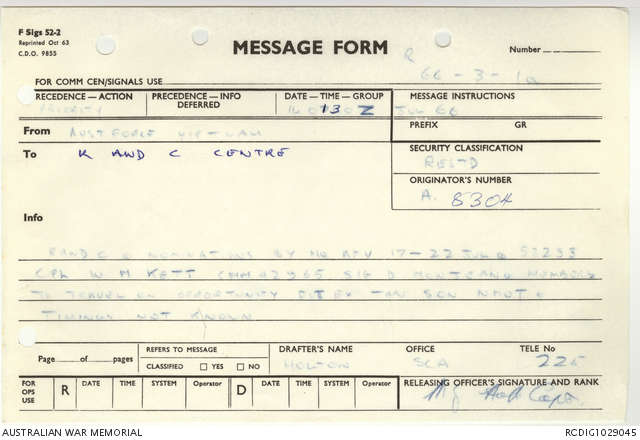 F Sigs 52-2
Reprinted Oct 63
C.D.O. 9855
MESSAGE FORM
Number
R 66-3-1a
FOR COMM CEN/SIGNALS USE
PRECEDENCE—ACTION
PRIORITY
PRECEDENCE—INFO
DEFERRED
DATE—TIME—GROUP
130 Z JUL 66
MESSAGE INSTRUCTIONS
PREFIX
GR
From AUST FORCE VIET-NAM
To R AND C CENTRE
SECURITY CLASSIFICATION
REST-D
ORIGINATOR'S NUMBER
A. 8304
Info
R AND C NOMINATIONS BY HQ AFV 17-22 JUL 52233
CPL W H KETT SIG D MEMBERS
TO TRAVEL ON OPPORTUNITY EX TAN SON NHUT
TIMINGS NOT KNOWN
Page of pages
REFERS TO MESSAGE
CLASSIFIED YES NO
DRAFTER'S NAME
HOLTON
OFFICE
SCA
TELE NO
225
FOR OPS USE
R DATE TIME SYSTEM Operator D DATE TIME SYSTEM Operator
RELEASING OFFICER'S SIGNATURE AND RANK
Capt.
AUSTRALIAN WAR MEMORIAL
RCDIG1029045